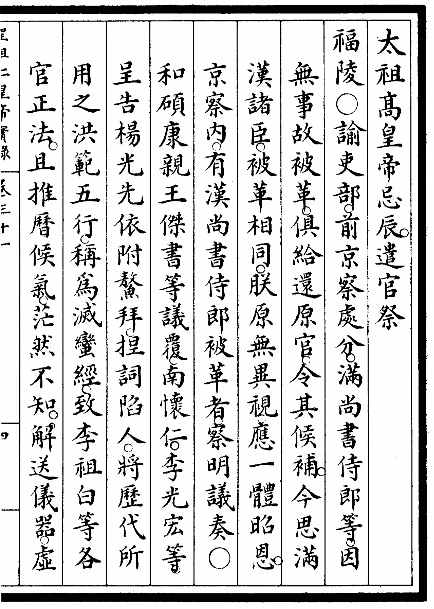 太祖高皇帝忌辰。遣官祭
福陵○諭吏部。前京察處分。滿尚書侍郎等。因
無事故被革。俱給還原官。令其候補。今思滿
漢諸臣。被革相同。朕原無異視。應一體昭恩。
京察內。有漢尚書侍郎被革者。察明議奏○
和碩康親王傑書等議覆。南懷仁。李光宏等。
呈告楊光先依附鰲拜。捏詞陷人。將歷代所
用之洪範五行。稱爲滅蠻經。致李祖白等各
官正法。且推曆候氣。茫然不知。解送儀器。虛
祖仁皇帝實錄 卷三十一 四